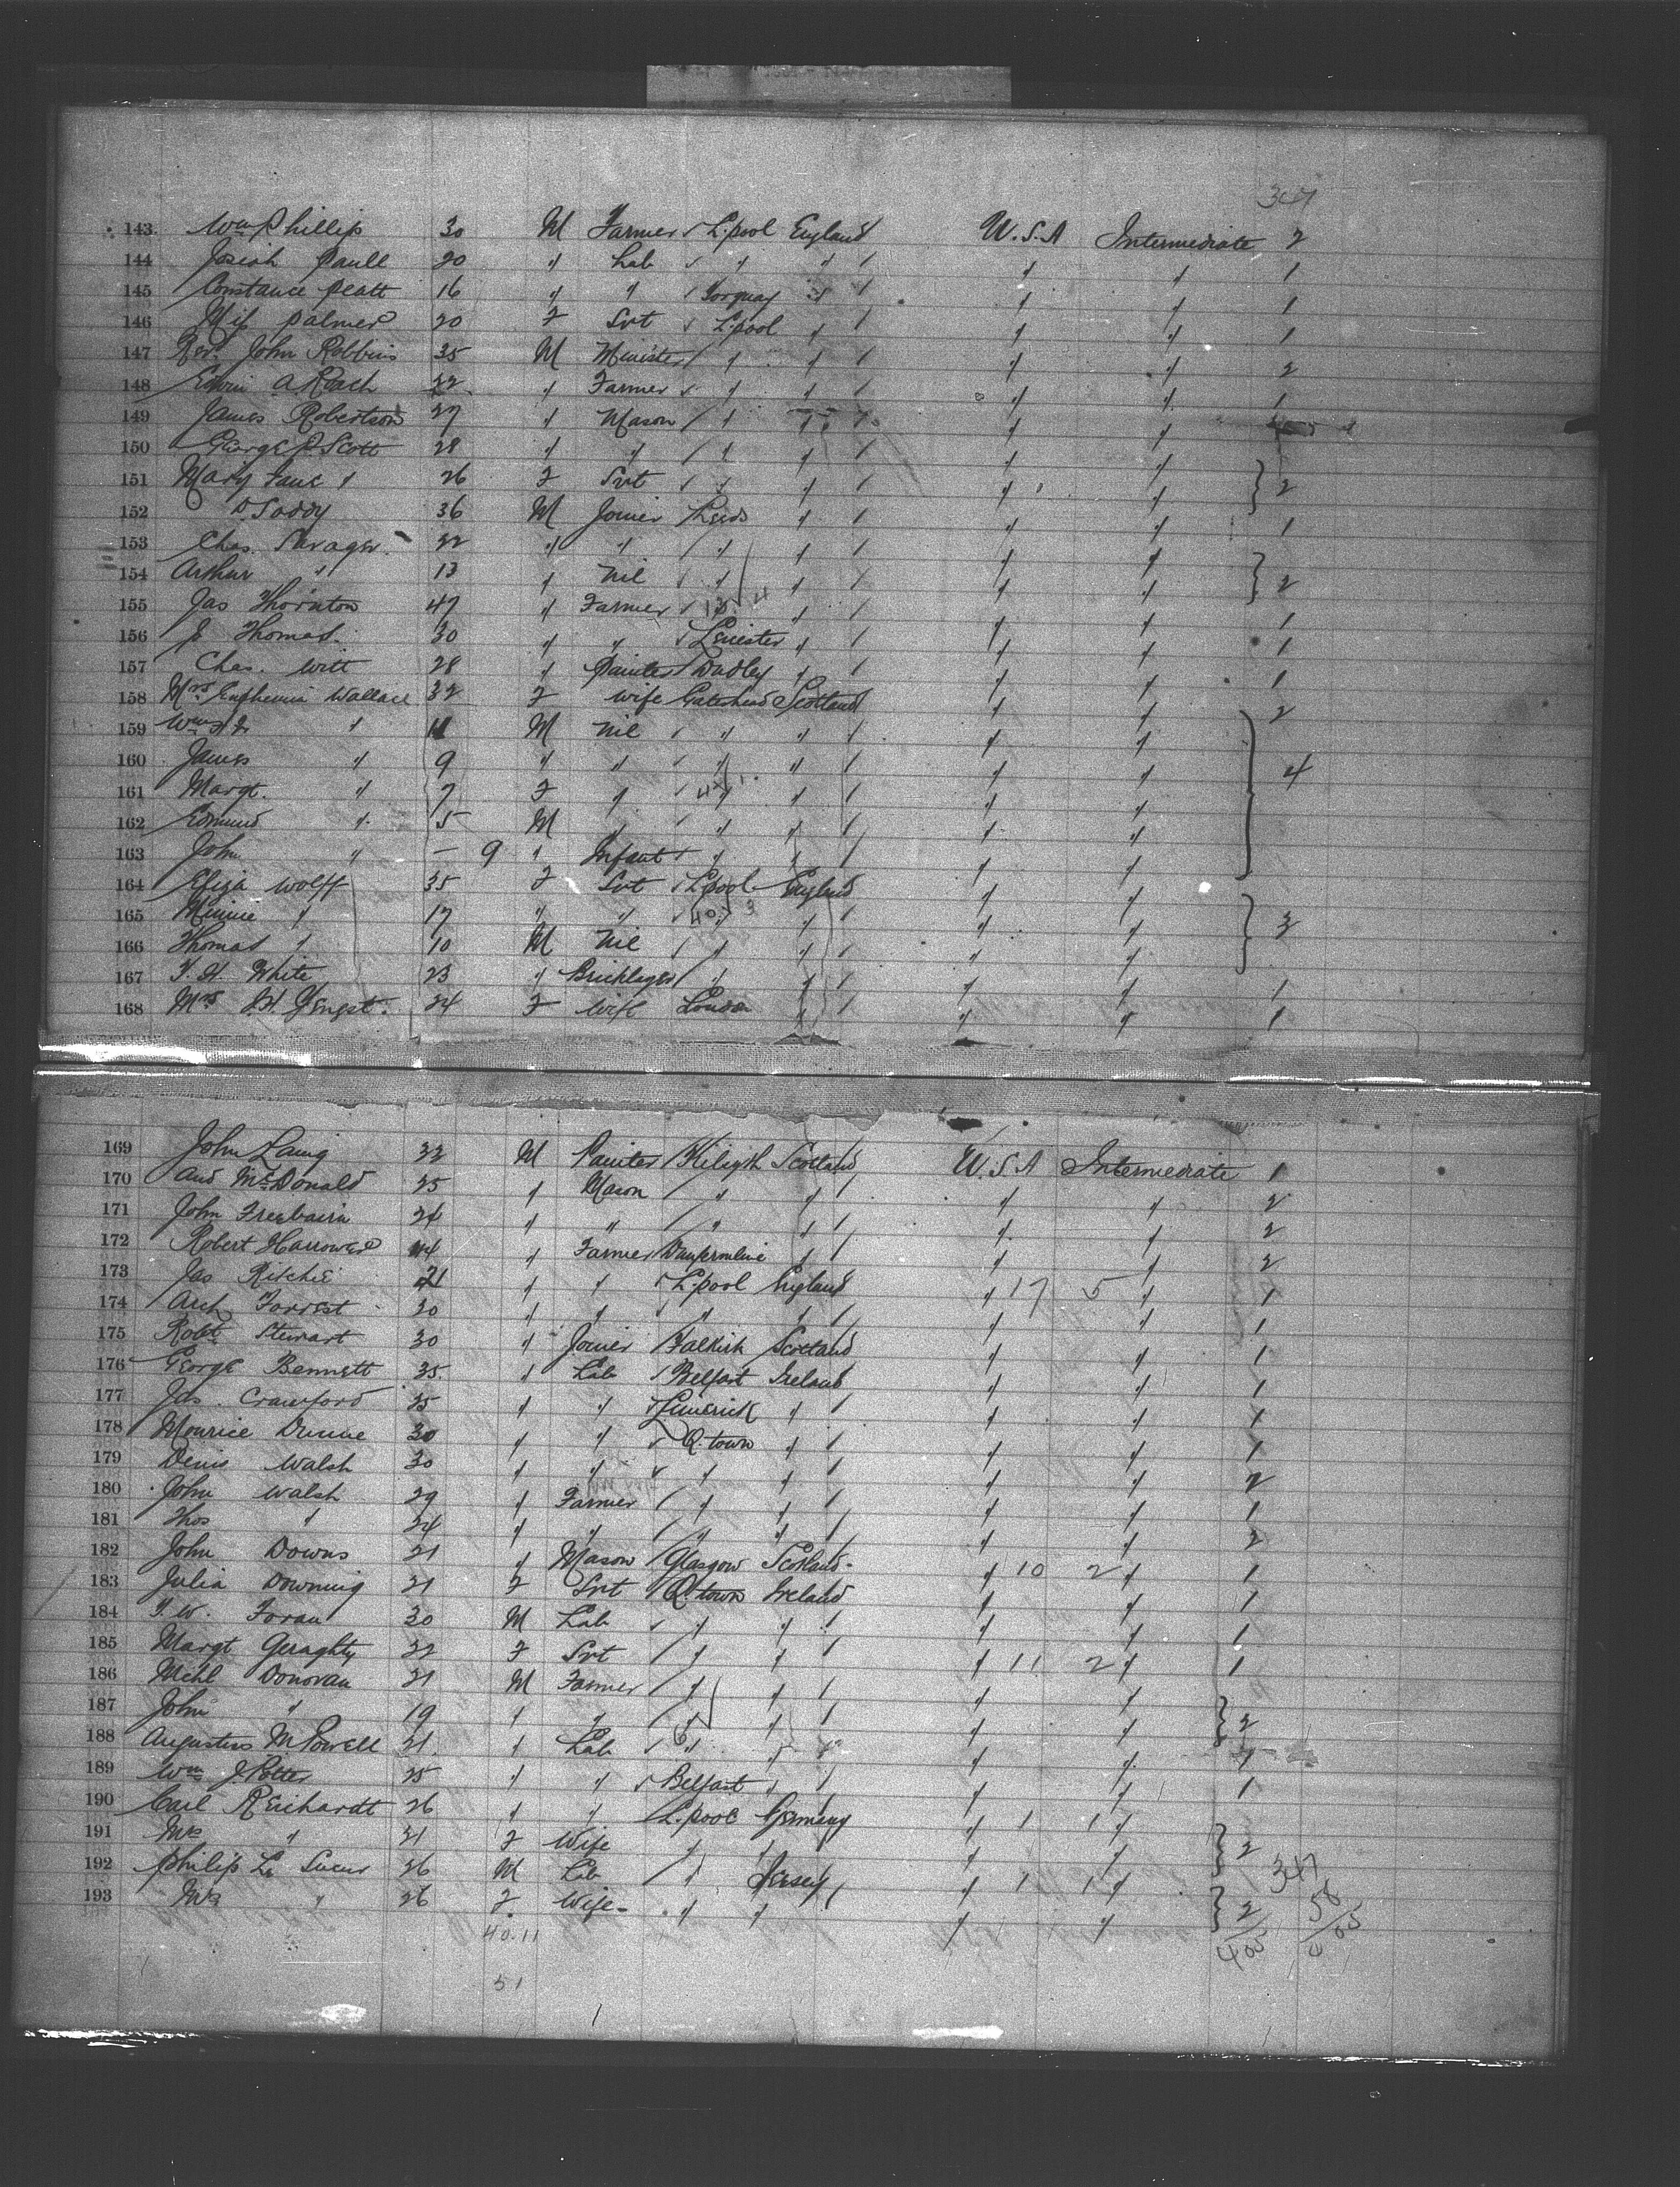 347
143 Wm Phillip 30 M Farmer L.pool England U.S.A Intermediate 2
144 Josiah Paull 20 " Lab " " " " 1
145 Constance Peatt 16 " " Torquay " " " 1
146 Miss Palmer 20 F Svt L.pool " " " 1
147 Revd John Robbins 35 M Minister " " " " 2
148 Edwin A. Roach 22 " Farmer " " " " 1
149 James Robertson 27 " Mason " " " "
150 George P Scott 28 " " " " " "
151 Mary Jane " 26 F Svt " " " " 2
152 D Soddy 36 M Joiner Leeds " " " 1
153 Chas. 32 " " " " " "
154 Arthur " 13 " Nil " " " " 2
155 Jas Thornton 47 " Farmer " " " " 1
156 J Thomas 30 " " Leicester " " " 1
157 Chas. Witt 28 " Painter Dudley " " " 1
158 Mrs Euphemia Wallace 32 F wife Gateshead Scotland " " 2
159 Wm " 11 M Nil " " " "
160 James " 9 " " " " " "
161 Margt. " 7 F " " " " " 4
162 Edmund " 5 M " " " " "
163 John " — 9 " Infant " " " "
164 Eliza Wolff 35 F Svt L.pool England " "
165 Minnie " 17 " " " " " " 3
166 Thomas " 10 M Nil " " " "
167 T. H. White 23 " Bricklayer " " " " 1
168 Mrs J.H. Yengst 24 F Wife London " " " 1
169 John Laing 22 M Painter Kilsyth Scotland U.S.A Intermediate 1
170 And McDonald 25 " Mason " " " " 2
171 John Freebairn 24 " " " " " " 2
172 Robert Harrower 44 " Farmer Dunfermline " " " 2
173 Jas Ritchie 21 " " L.pool England " 17 5 " 1
174 Arch Forrest 30 " " " " " " 1
175 Robt Stewart 30 " Joiner Falkirk Scotland " " 1
176 George Bennett 35 " Lab Belfast Ireland " " 1
177 Jas. Crawford 25 " " Limerick " " " 1
178 Mourice Dunne 30 " " Q.town " " " 1
179 Denis Walsh 30 " " " " " " 2
180 John Walsh 29 " Farmer " " " " 1
181 Thos " 24 " " " " " " 2
182 John Downs 21 " Mason Glasgow Scotland " 10 2 " 1
183 Julia Downing 21 F Svt Q.town Ireland " " 1
184 T. W. Foran 30 M Lab " " " " 1
185 Margt Geraghty 22 F Svt " " " 11 2 " 1
186 Michl Donovan 21 M Farmer " " " "
187 John " 19 " " " " " " 2
188 Augustus M Powell 21 " Lab " " " " 1
189 Wm J. Potter 25 " " Belfast " " " 1
190 Carl Reichardt 26 " " L.pool Germany " 1 1 "
191 Mrs " 21 F Wife " " " " 2
192 Philip Le Sueur 26 M Lab " Jersey " 1 1 " 347
193 Mrs " 26 F Wife " " " " 2 58
40.11 405 405
51